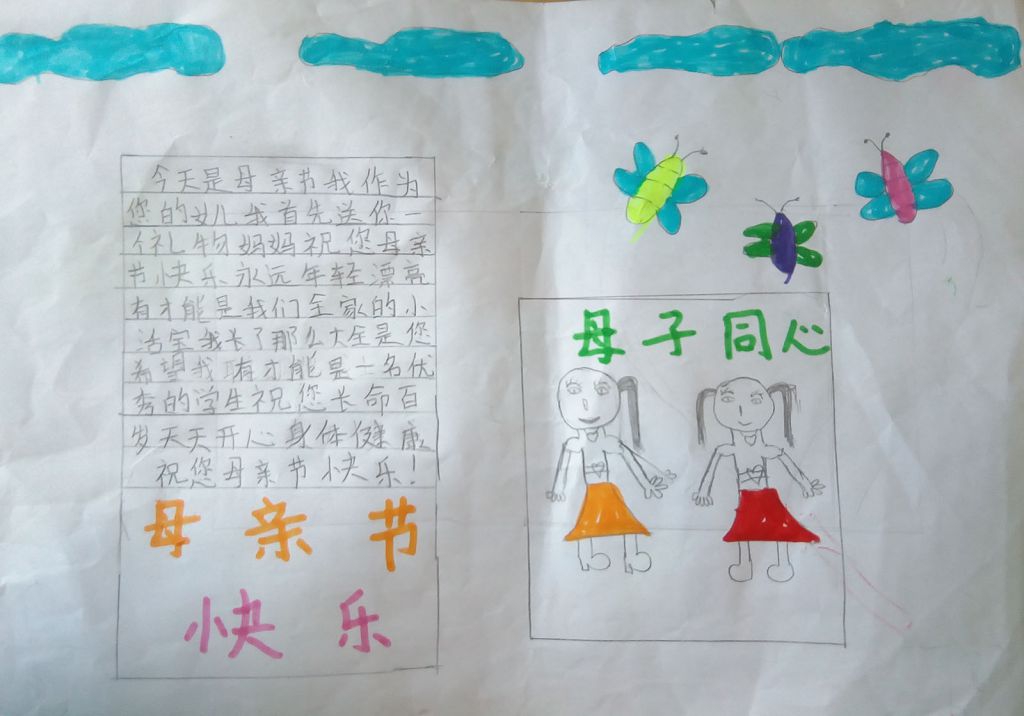 今天是母亲节我作为
您的女儿我首先送你一
个礼物妈妈祝您母亲
节快乐永远年轻漂亮
有才能是我们全家的小
活宝我长了那么大全是您
希望我有才能是一名优
秀的学生祝您长命百
岁天天开心身体健康
祝您母亲节快乐!
母亲节
快乐
母子同心